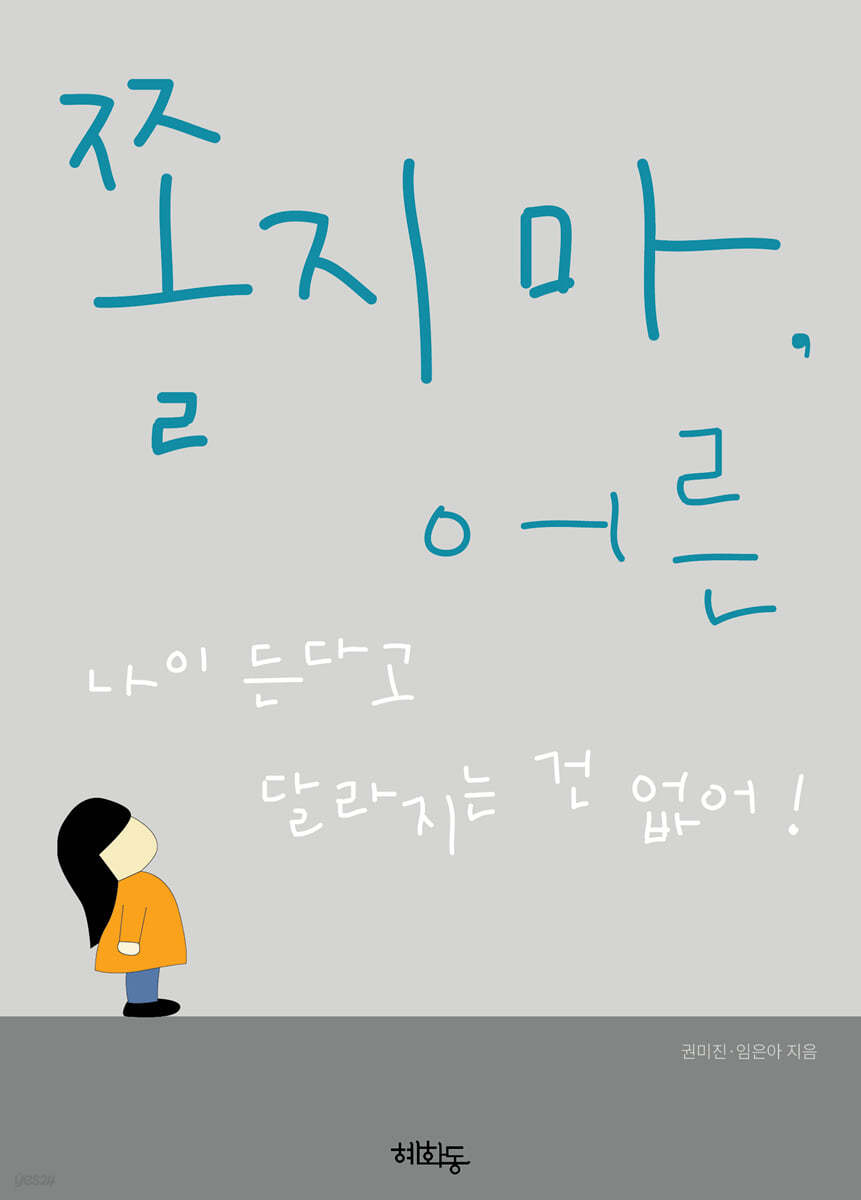 쫄지 마,
어른
나이 든다고
달라지는 건 없어!
권미진·임은아 지음
혜화동
yes24